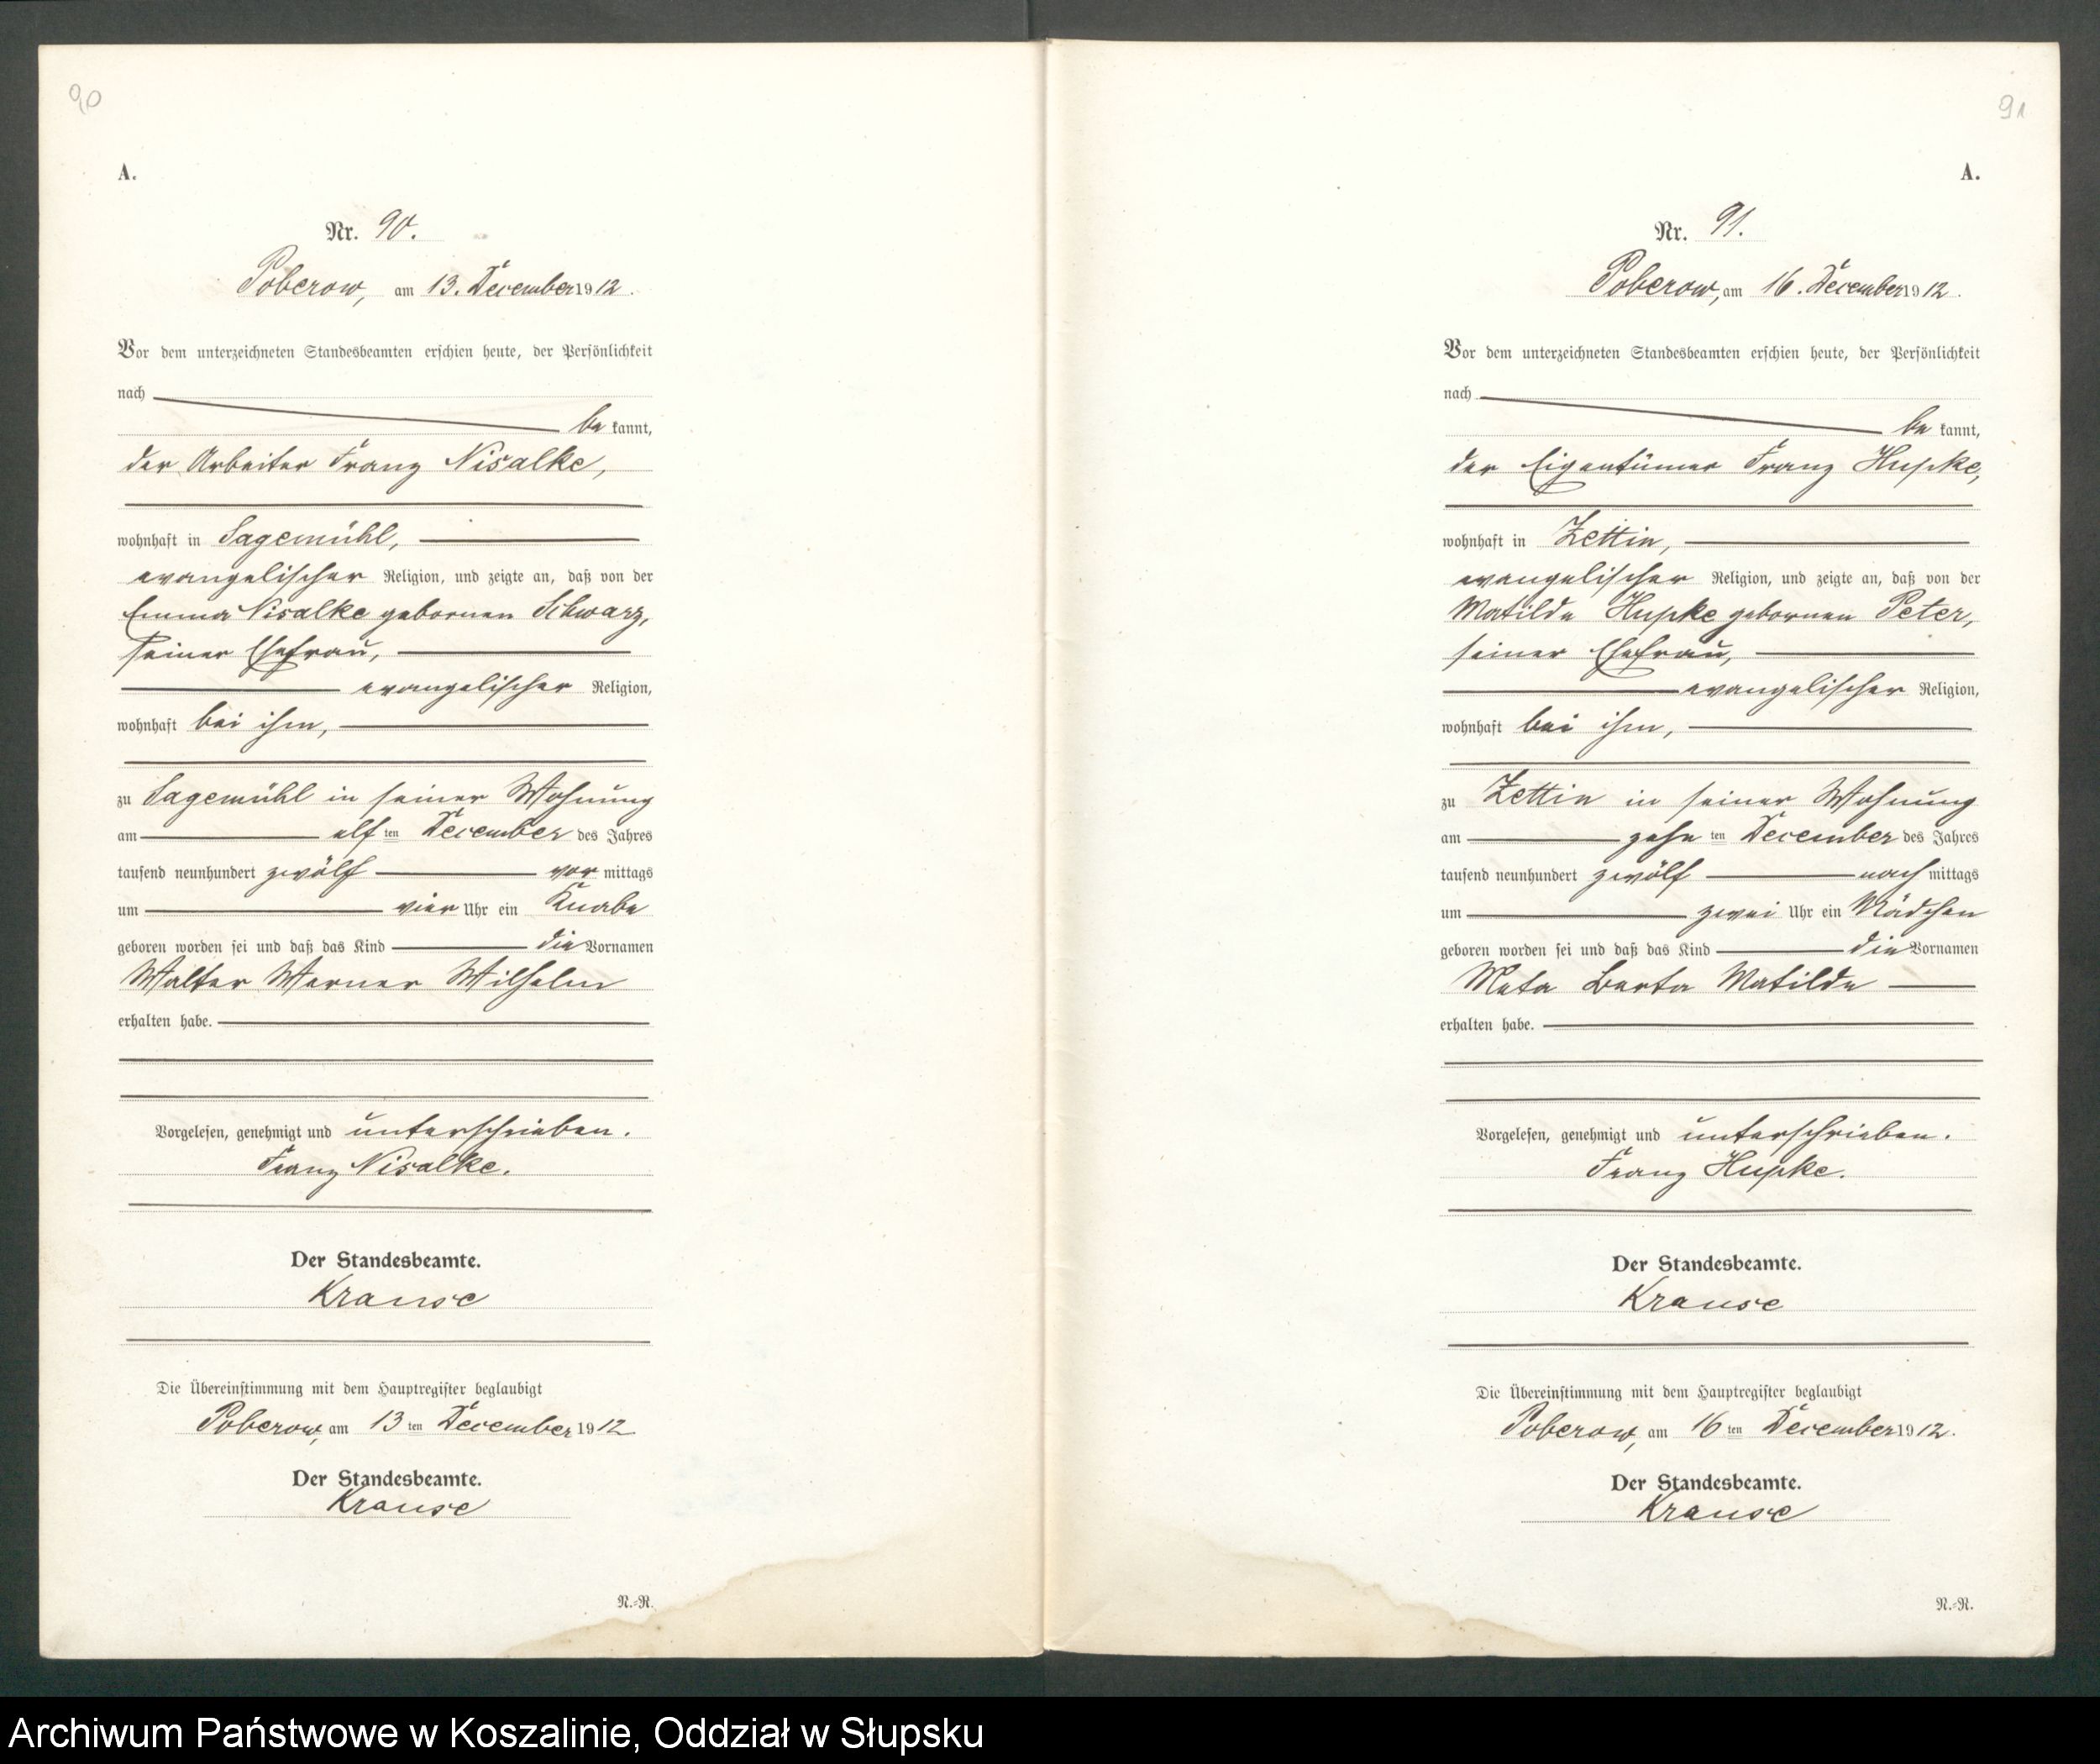 90
A.
Nr. 90.
Poberow, am 13. December 1912.
Vor dem unterzeichneten Standesbeamten erschien heute, der Persönlichkeit
nach
be kannt,
der Arbeiter Franz Nisalke,
wohnhaft in Sagemühl,
evangelischer Religion, und zeigte an, daß von der
Emma Nisalke gebornen Schwarz,
seiner Ehefrau,
evangelischer Religion,
wohnhaft bei ihm,
zu Sagemühl in seiner Wohnung
am elf ten December des Jahres
tausend neunhundert zwölf vor mittags
um vier Uhr ein Knabe
geboren worden sei und daß das Kind die Vornamen
Walter Werner Wilhelm
erhalten habe.
Vorgelesen, genehmigt und unterschrieben.
Franz Nisalke.
Der Standesbeamte.
Krause
Die Übereinstimmung mit dem Hauptregister beglaubigt
Poberow, am 13 ten December 1912
Der Standesbeamte.
Krause
N.-R.
91
A.
Nr. 91.
Poberow, am 16. December 1912.
Vor dem unterzeichneten Standesbeamten erschien heute, der Persönlichkeit
nach
be kannt,
der Eigentümer Franz Hupke,
wohnhaft in Zettin,
evangelischer Religion, und zeigte an, daß von der
Matilde Hupke gebornen Peter,
seiner Ehefrau,
evangelischer Religion,
wohnhaft bei ihm,
zu Zettin in seiner Wohnung
am zehn ten December des Jahres
tausend neunhundert zwölf nach mittags
um zwei Uhr ein Mädchen
geboren worden sei und daß das Kind die Vornamen
Meta Berta Matilde
erhalten habe.
Vorgelesen, genehmigt und unterschrieben.
Franz Hupke.
Der Standesbeamte.
Krause
Die Übereinstimmung mit dem Hauptregister beglaubigt
Poberow, am 16 ten December 1912.
Der Standesbeamte.
Krause
N.-R.
Archiwum Państwowe w Koszalinie, Oddział w Słupsku